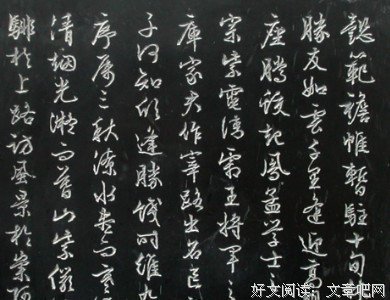 懿範襜帷暫駐十旬
勝友如雲千里逢迎高
座騰蛟起鳳孟學士之
宗紫電清霜王將軍之
庫家君作宰路出名區
子何知躬逢勝餞時維九
序屬三秋潦水盡而寒
清煙光凝而暮山紫儼
騑於上路訪風景於崇阿
好文阅读，文章吧网